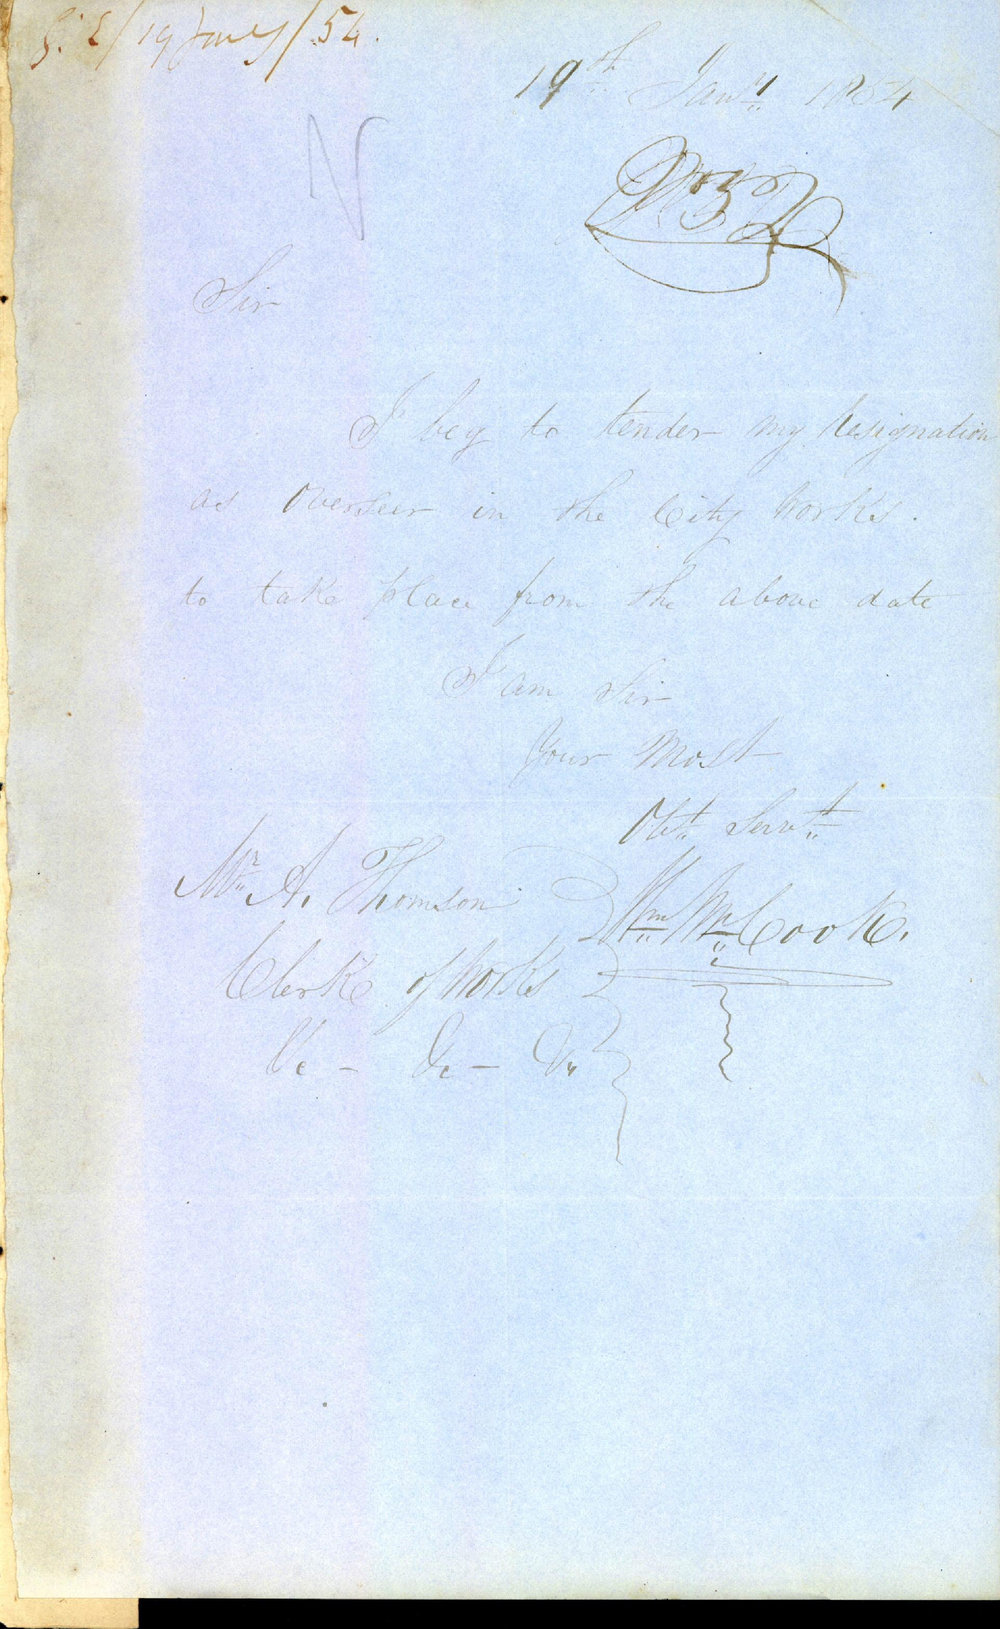 19 Jany / 54.
19th Jany 1854
N
No 52
Sir
I beg to tender my Resignation
as Overseer in the City Works.
to take place from the above date
I am Sir
Your Most
Obt. Servt.
Mr. A. Thomson
Wm McCook.
Clerk of Works
&c - &c - &c